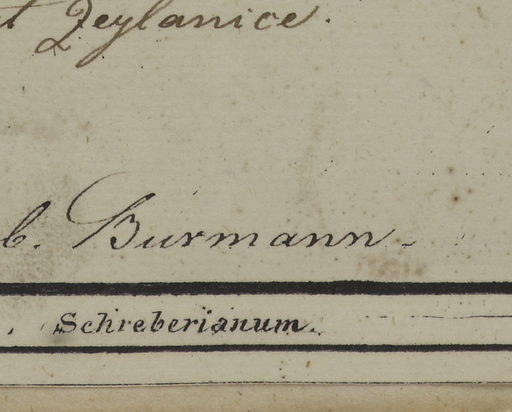 t Zeylanice.
b. Burmann.
. Schreberianum.